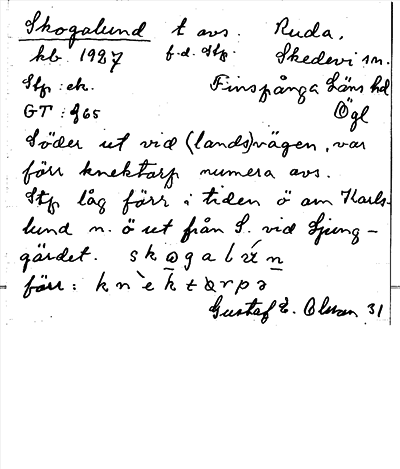 Skogalund t avs. Ruda,
kb 1927 f.d. Stp. Skedevi sn.
Stp : ek. Finspånga Läns hd
GT : 965 Ögl
Söder ut vid (lands)vägen, var
förr knektorp numera avs.
Stp låg förr i tiden ö om Karls-
lund n. ö ut från S. vid Ljung-
gärdet. skogalun
förr : knèktorpə
Gustaf E. Olsson 31